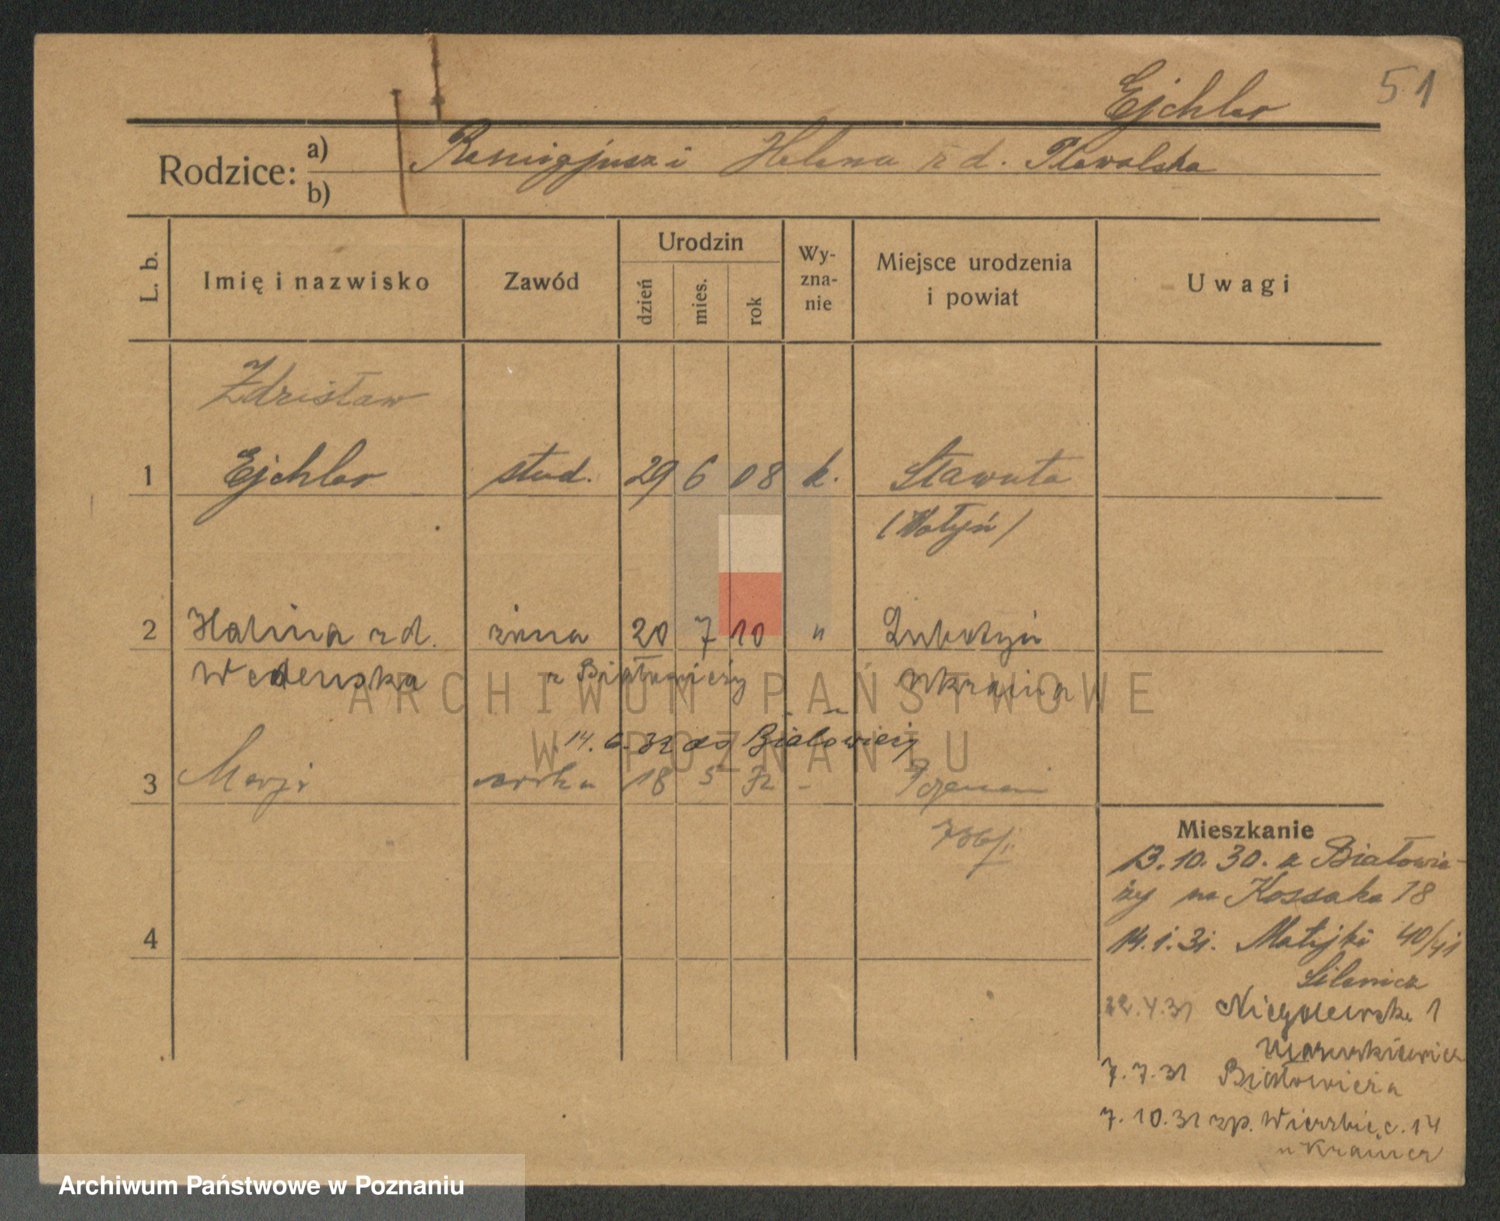 51
Ejchler
Rodzice: a) Remigjusz i Helena z d. Plewalska
b)
L. b. Imię i nazwisko Zawód Urodzin dzień mies. rok Wy-zna-nie Miejsce urodzenia i powiat Uwagi
Zdzisław
1 Ejchler stud. 29 6 08 k. Sławuta
(Wołyń)
2 Halina z d. żona 20 7 10 " Lubotyń
Wedenska z Białowieży Ukraina
14. 6. 32 do Białowieży
3 Marja córka 18 5 32 -
4
Mieszkanie
13. 10. 30. z Białowie-
ży na Kossaka 18
14. 1. 31. Matejki 40/41
22. 4. 31 Niegolewska 1
7. 7. 31 Białowieża
7. 10. 31 zp. Wierzbięc. 14
u Kramer
ARCHIWUM PAŃSTWOWE
W POZNANIU
Archiwum Państwowe w Poznaniu